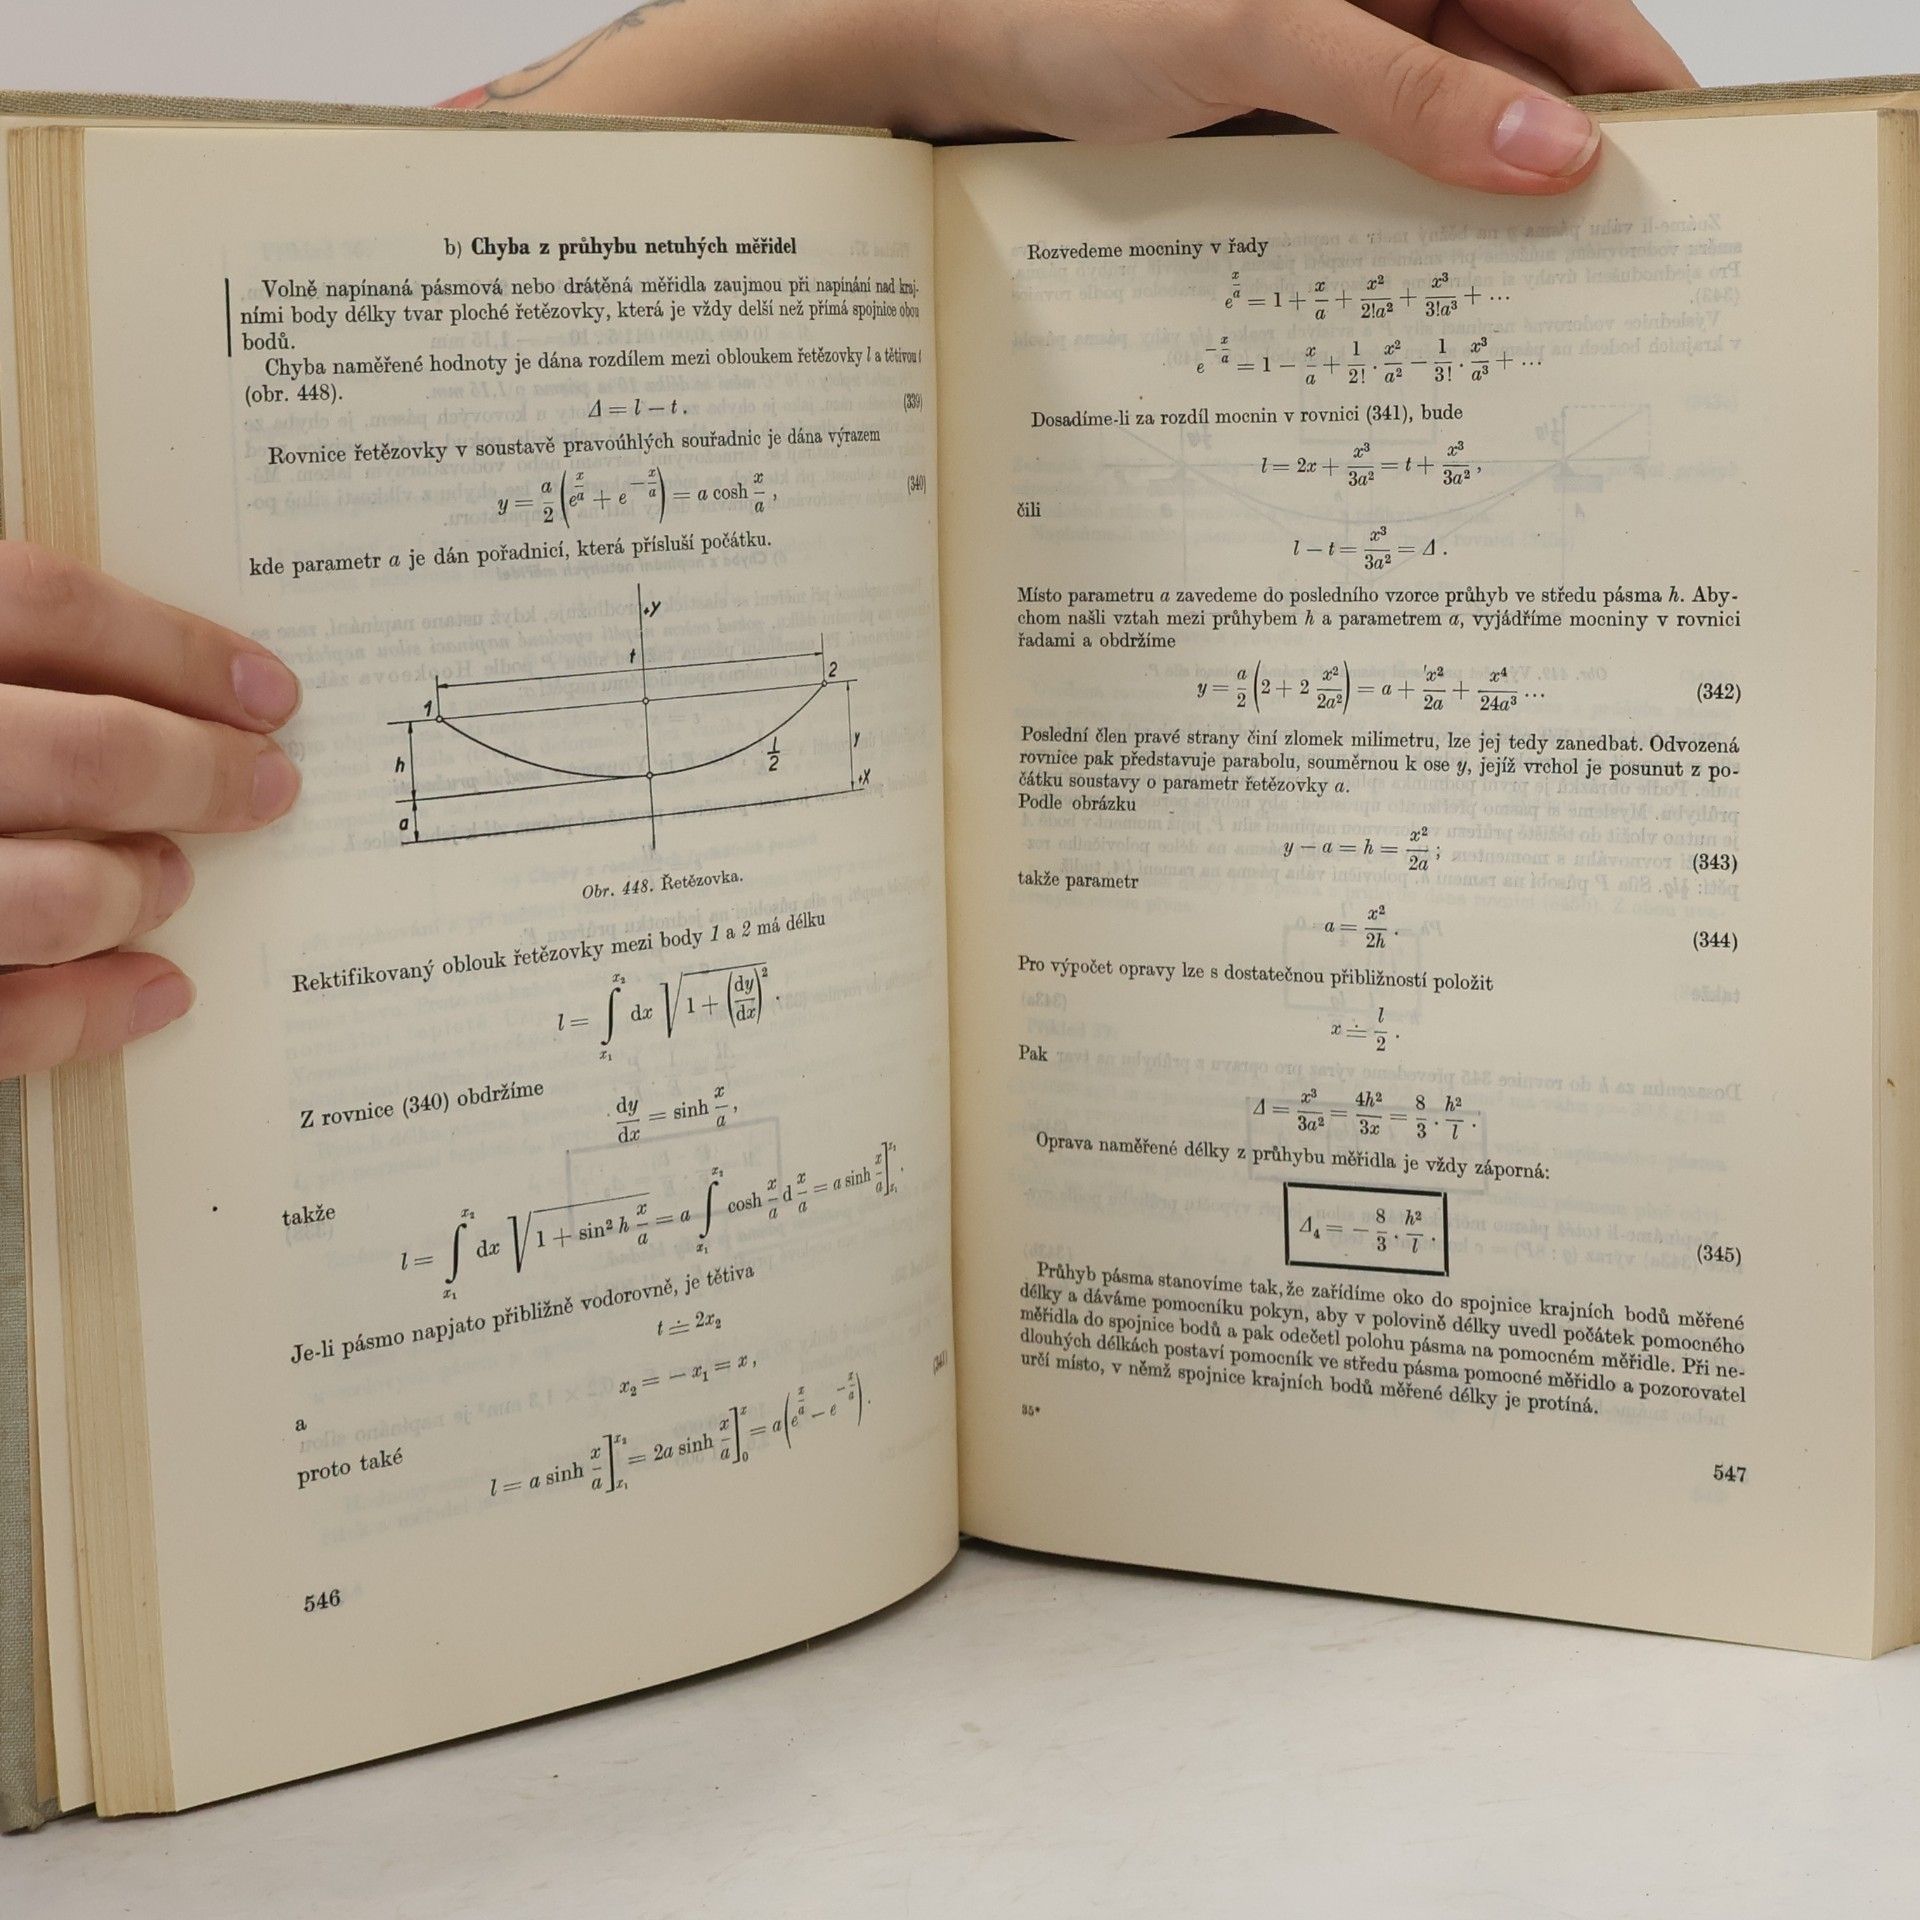 b) Chyba z průhybu netuhých měřidel
Volně napínaná pásmová nebo drátěná měřidla zaujmou při napínání nad kraj-
ními body délky tvar ploché řetězovky, která je vždy delší než přímá spojnice obou
bodů.
Chyba naměřené hodnoty je dána rozdílem mezi obloukem řetězovky l a tětivou t
(obr. 448).
Δ = l − t . (339)
Rovnice řetězovky v soustavě pravoúhlých souřadnic je dána výrazem
y = a/2 (e^(x/a) + e^(−x/a)) = a cosh x/a , (340)
kde parametr a je dán pořadnicí, která přísluší počátku.
+y
t
1
2
h
1/2
y
+x
a
Obr. 448. Řetězovka.
Rektifikovaný oblouk řetězovky mezi body 1 a 2 má délku
l = ∫_{x₁}^{x₂} dx √(1 + (dy/dx)²) .
Z rovnice (340) obdržíme
dy/dx = sinh x/a ,
takže
l = ∫_{x₁}^{x₂} dx √(1 + sin² h x/a) = a ∫_{x₁}^{x₂} cosh x/a d x/a = a sinh x/a ]_{x₁}^{x₂} .
Je-li pásmo napjato přibližně vodorovně, je tětiva
t ≐ 2x₂
a
x₂ = − x₁ = x ,
proto také
l = a sinh x/a ]_{x₁}^{x₂} = 2a sinh x/a ]_0^x = a (e^(x/a) − e^(−x/a)) . (341)
546
Rozvedeme mocniny v řady
e^(x/a) = 1 + x/a + x²/2!a² + x³/3!a³ + ...
e^(−x/a) = 1 − x/a + 1/2! . x²/a² − 1/3! . x³/a³ + ...
Dosadíme-li za rozdíl mocnin v rovnici (341), bude
l = 2x + x³/3a² = t + x³/3a² ,
čili
l − t = x³/3a² = Δ .
Místo parametru a zavedeme do posledního vzorce průhyb ve středu pásma h. Aby-
chom našli vztah mezi průhybem h a parametrem a, vyjádříme mocniny v rovnici
řadami a obdržíme
y = a/2 (2 + 2 x²/2a²) = a + x²/2a + x⁴/24a³ ... (342)
Poslední člen pravé strany činí zlomek milimetru, lze jej tedy zanedbat. Odvozená
rovnice pak představuje parabolu, souměrnou k ose y, jejíž vrchol je posunut z po-
čátku soustavy o parametr řetězovky a.
Podle obrázku
y − a = h = x²/2a ; (343)
takže parametr
a = x²/2h . (344)
Pro výpočet opravy lze s dostatečnou přibližností položit
x ≐ l/2 .
Pak
Δ = x³/3a² = 4h²/3x = 8/3 . h²/l .
Oprava naměřené délky z průhybu měřidla je vždy záporná:
Δ₄ = − 8/3 . h²/l . (345)
Průhyb pásma stanovíme tak, že zařídíme oko do spojnice krajních bodů měřené
délky a dáváme pomocníku pokyn, aby v polovině délky uvedl počátek pomocného
měřidla do spojnice bodů a pak odečetl polohu pásma na pomocném měřidle. Při ne-
dlouhých délkách postaví pomocník ve středu pásma pomocné měřidlo a pozorovatel
určí místo, v němž spojnice krajních bodů měřené délky je protíná.
35*
547